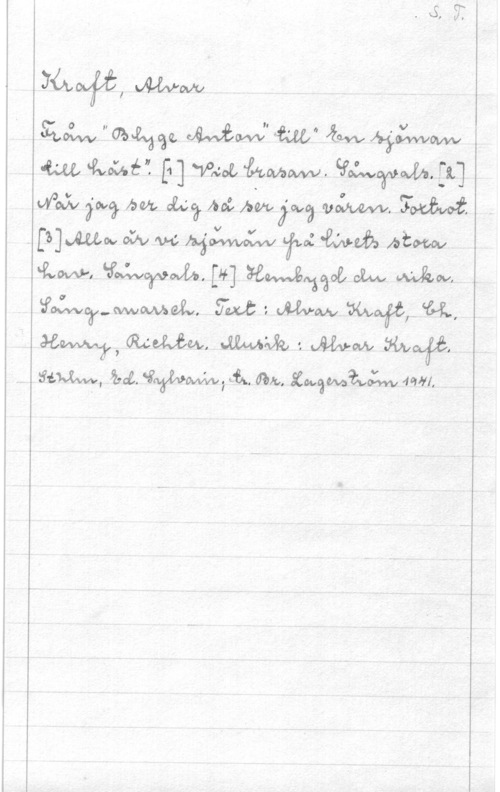 S. T.
Kraft, Alvar
Från "Blyge Anton" till "En sjöman
till häst". [1] Vid brasan. Sångvals. [2]
När jag ser dig så ser jag våren. Foxtrot.
[3] Alla är vi sjömän på livets stora
hav. Sångvals. [4] Hembygd du rika.
Sång-marsch. Text: Alvar Kraft, Ch.
Henry, Richter. Musik: Alvar Kraft.
Sthlm, Ed. Sylvain, tr. Br. Lagerström 1941.